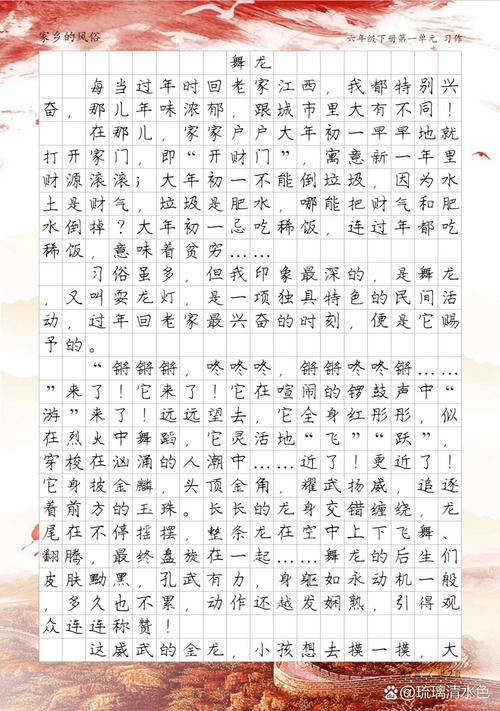 家乡的风俗 六年级下册第一单元 习作
舞龙
每当过年时回老家江西，我都特别兴
奋，那儿年味浓郁，跟城市里大有不同！
在那儿，家家户户大年初一早早地就
打开家门，即“开财门”，寓意新一年里
财源滚滚；大年初一不能倒垃圾，因为水
土是财气，垃圾是肥水，哪能把财气和肥
水倒掉？大年初一忌吃稀饭，连过年都吃
稀饭，意味着贫穷……
习俗虽多，但我印象最深的，是舞龙
，又叫耍龙灯，是一项独具特色的民间活
动，过年回老家最兴奋的时刻，便是它赐
予的。
“锵锵锵，咚咚咚，锵锵咚咚锵……
”来了！它来了！它在喧闹的锣鼓声中“
游”来了！远远望去，它全身红彤彤，似
在烈火中舞蹈，它灵活地“飞”“跃”，
穿梭在汹涌的人潮中……近了！更近了！
它身披金鳞，头顶金角，耀武扬威，追逐
着前方的玉珠。长长的龙身交错缠绕，龙
尾在不停摇摆，整条龙在空中上下飞舞、
翻腾，最终盘旋在一起……舞龙的后生们
皮肤黝黑，孔武有力，身躯如永动机一般
，多久也不累，动作还越发娴熟，引得观
众连连称赞！
这威武的金龙，小孩想去摸一摸，大
@琉璃清水色